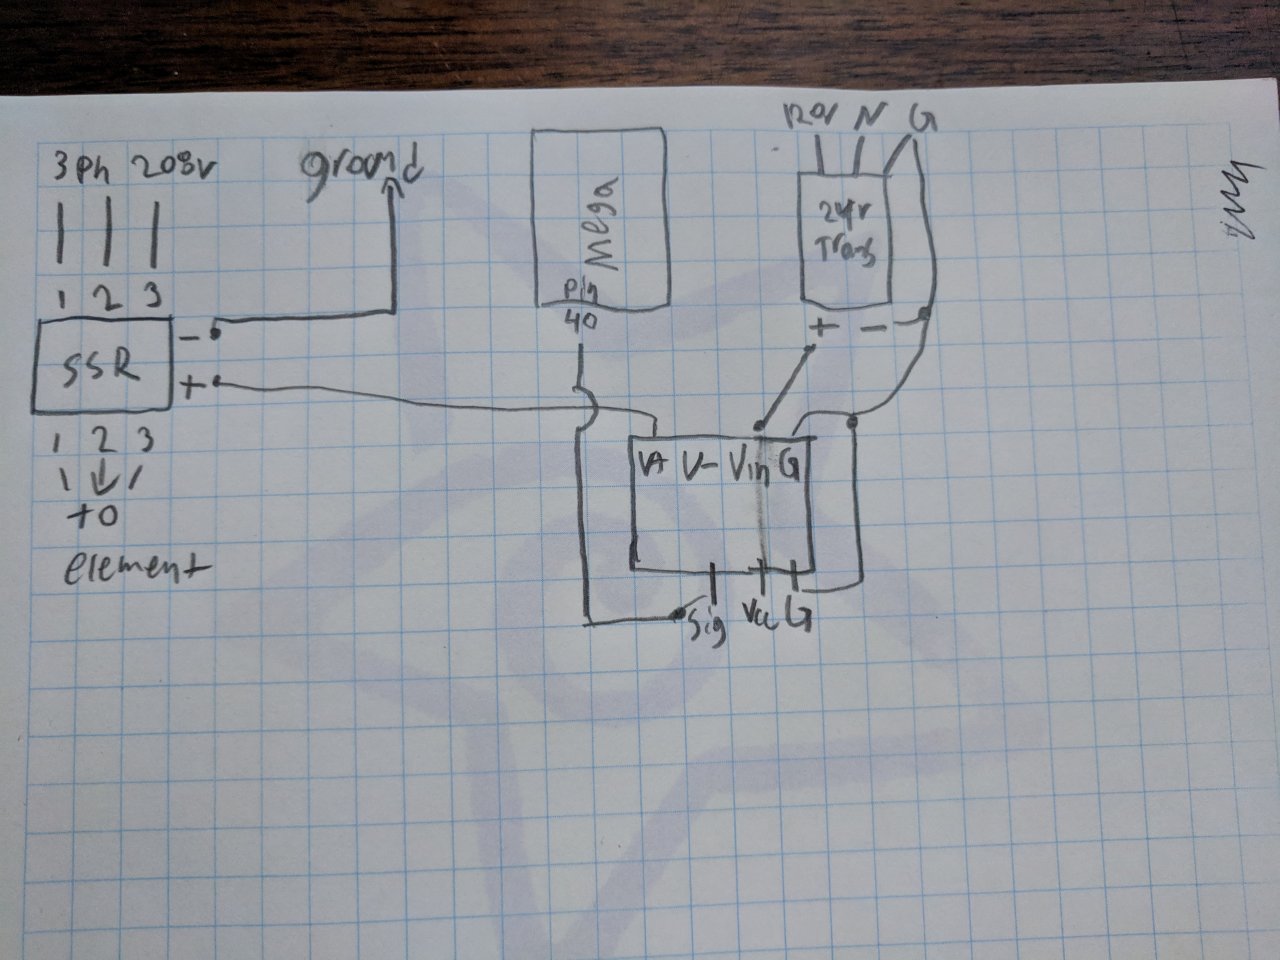 3Ph 208v
ground
1 2 3
SSR
-
+
1 2 3
to
element
Mega
Pin
40
120v N G
24v
Trans
+ -
V+ V- Vin G
Sig Vcc G